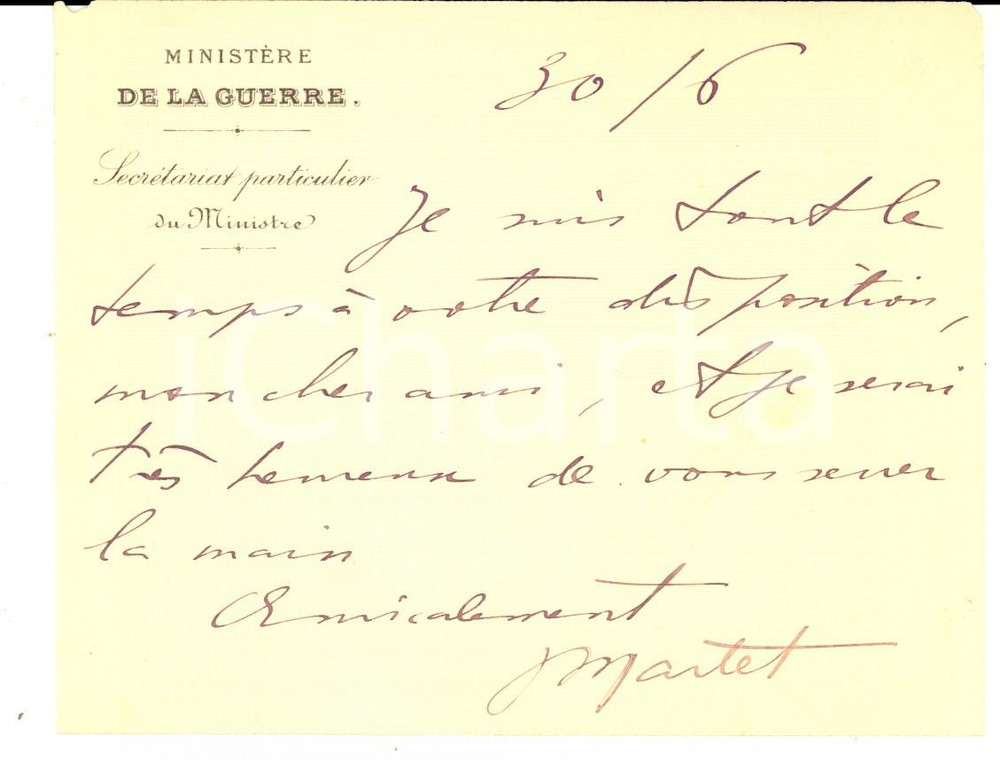 MINISTÈRE
DE LA GUERRE.
Secrétariat particulier
du Ministre
30/6
Je suis tout le
temps à votre disposition,
mon cher ami, et je serai
très heureux de vous serrer
la main
Amicalement
J Martet
iCharta